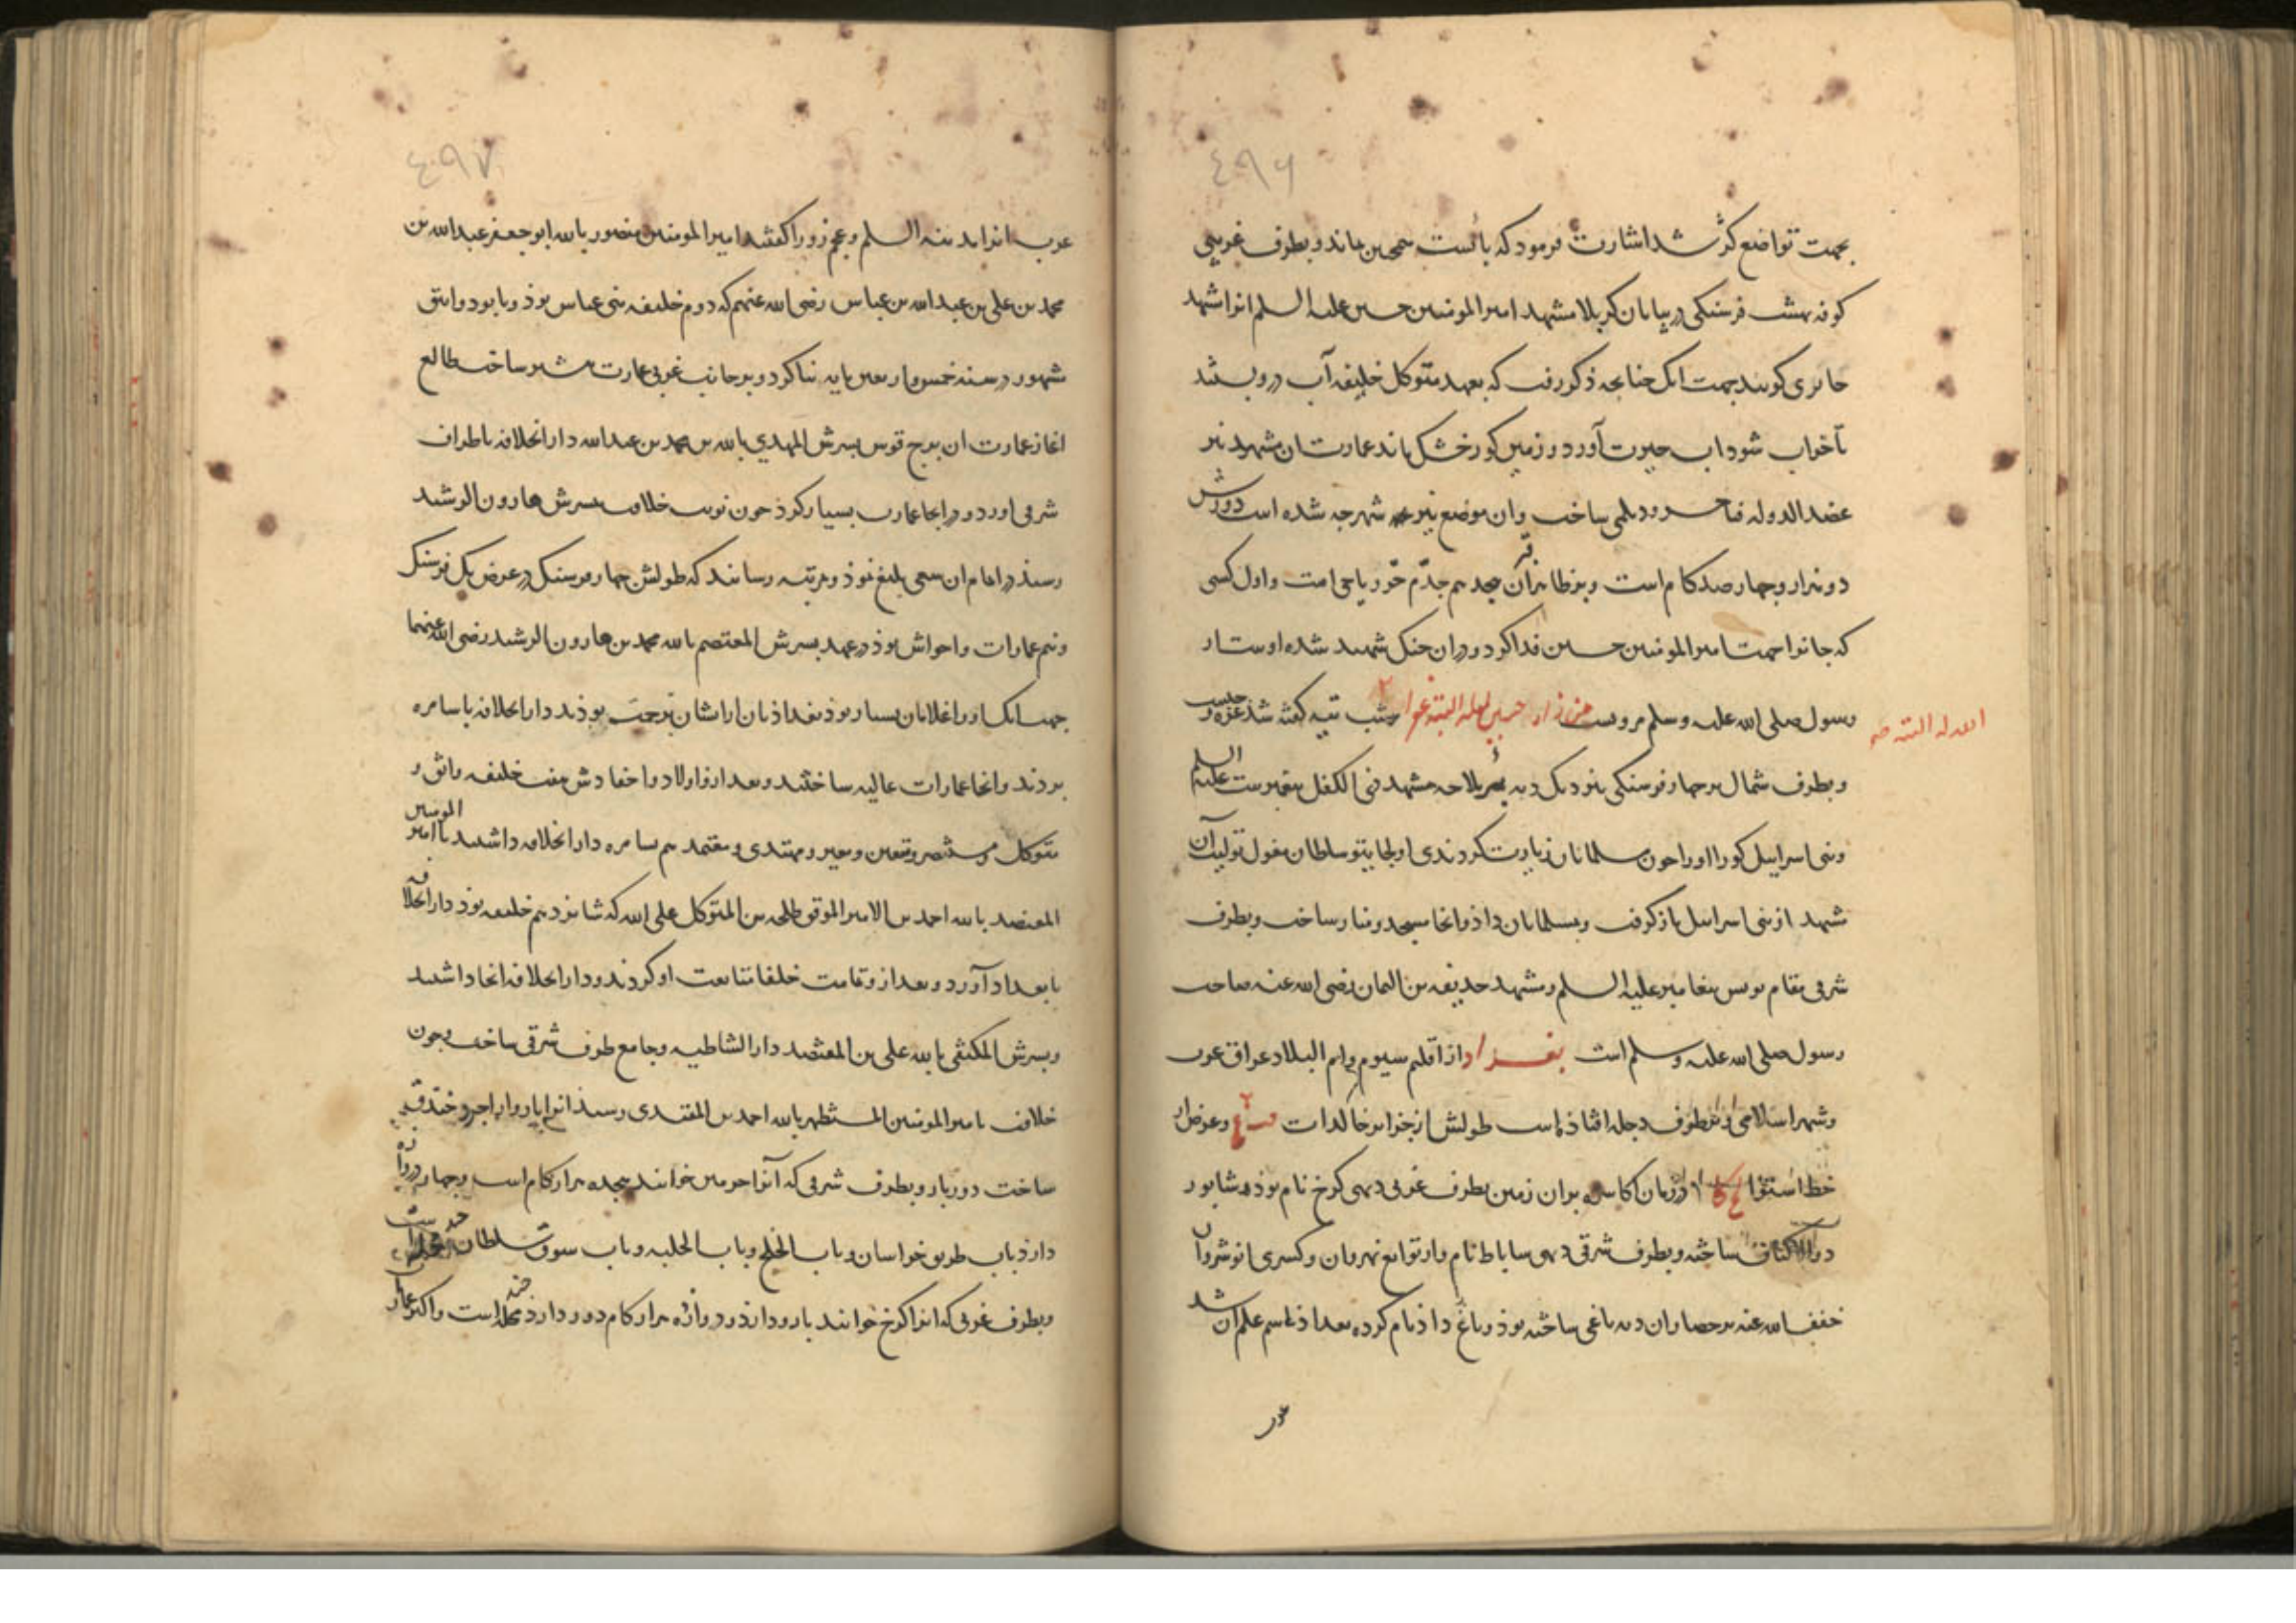 ٤٩٦
بجهت تواضع کژ شد اشارت فرمود که بائست همچنین بماند و بطرف غربی
کوفه بهشت فرسنکی در بیابان کربلا مشهد امیرالمومنین حسین علیه السلم انرا مشهد
حایری کویند بجهت انک چنانچه ذکر رفت که بعهد متوکل خلیفه آب در و بستند
تا خراب شود اب حیرت آورد و زمین کور خشک بماند عمارت ان مشهد نیز
عضد الدوله فنا خسرو دیلمی ساخت وان موضع نیز شهرجه شده است دورش
دو هزار و چهار صد کام است و بر ظاهران قبر جد هم جدم حر ریاحی است و اول کسی
که جانرا بجهت امیرالمومنین حسین فدا کرد و در ان جنک شهید شده اوست از
رسول صلی الله علیه و سلم مرویست من زار حسین لیله الجمعه غفر
الله له البتة صح
و بطرف شمال بر چهار فرسنکی نزدیک دیه بئر ملاحه مشهد ذی الکفل پیغمبرست علیه السلم
و بنی اسراییل کور او را چون مسلمانان زیارت کردندی اولجایتو سلطان مغول تولیت آن
مشهد از بنی اسراییل باز کرفت و بمسلمانان داذ و انجا مسجد و منار ساخت و بطرف
شرقی مقام یونس پیغامبر علیه السلم و مشهد حذیفه بن الیمان رضی الله عنه صاحب
رسول صلی الله علیه و سلم است بغداد از اقلیم سیوم و ام البلاد عراق عرب
و شهر اسلامی و بر طرف دجله افتاذه است طولش از جزایر خالدات و عرض از
خط استوا و در زمان اکاسره بران زمین بطرف غربی دیهی کرخ نام بوذه شابور
ذو الاکتاف ساخته و بطرف شرقی دیهی ساباط نام و از توابع نهروان و کسری انوشروان
خفف الله عنه بر صحرای ان دیه باغی ساخته بوذ و باغ داذ نام کرده بغداذ اسم علم ان شد
عرب
٤٩٧
عرب انرا مدینه السلم و عجم زورا کفتند امیرالمومنین منصور بالله ابو جعفر عبدالله بن
محمد بن علی بن عبدالله بن عباس رضی الله عنهم که دوم خلیفه بنی عباس بوذ و بابو دوانیق
مشهور در سنه خمس و اربعین مایه بنا کرد و بر جانب غربی عمارت بیشتر ساخت طالع
اغاز عمارت ان برج قوس پسرش المهدی بالله بن محمد بن عبدالله دار الخلافه با طراف
شرقی اورد و در انجا عمارت بسیار کرذ چون نوبت خلافت بپسرش هارون الرشید
رسید در اتمام ان سعی بلیغ نموذ و بمرتبه رسانید که طولش چهار فرسنک در عرض یک فرسنک
و نیم عمارات و احواش بوذ در عهد پسرش المعتصم بالله محمد بن هارون الرشید رضی الله عنهما
جهت انک او را غلامان بسیار بوذ بغداذیان از ایشان بزحمت بوذند دار الخلافه با سامره
بردند و انجا عمارات عالیه ساختند و بعد از و اولاد و احفادش هفت خلیفه واثق و
متوکل و منتصر و مستعین و معتز و مهتدی و معتمد هم بسامره دار الخلافه داشتند تا امیر المومنین
المعتضد بالله احمد بن الامیر الموفق طلحه بن المتوکل علی الله که شانزدهم خلیفه بوذ دار الخلافه
با بغداد آورد و بعد از و تمامت خلفا متابعت او کردند و دار الخلافه انجا داشتند
و پسرش المکتفی بالله علی بن المعتضد دار الشاطیه و جامع طرف شرقی ساخت و چون
خلافت بامیر المومنین المستظهر بالله احمد بن المقتدی رسید انرا بارو از اجر و خندق
ساخت دور بارو بطرف شرقی که آنرا حرمین خوانند هجده هزار کام است و چهار دروازه
دارذ باب طریق خراسان و باب الخلج و باب الحلبه و باب سوق سلطان
و بطرف غربی که انرا کرخ خوانند بارو دارذ دروازه هزار کام دور دارذ محله است و اکثر عمارات